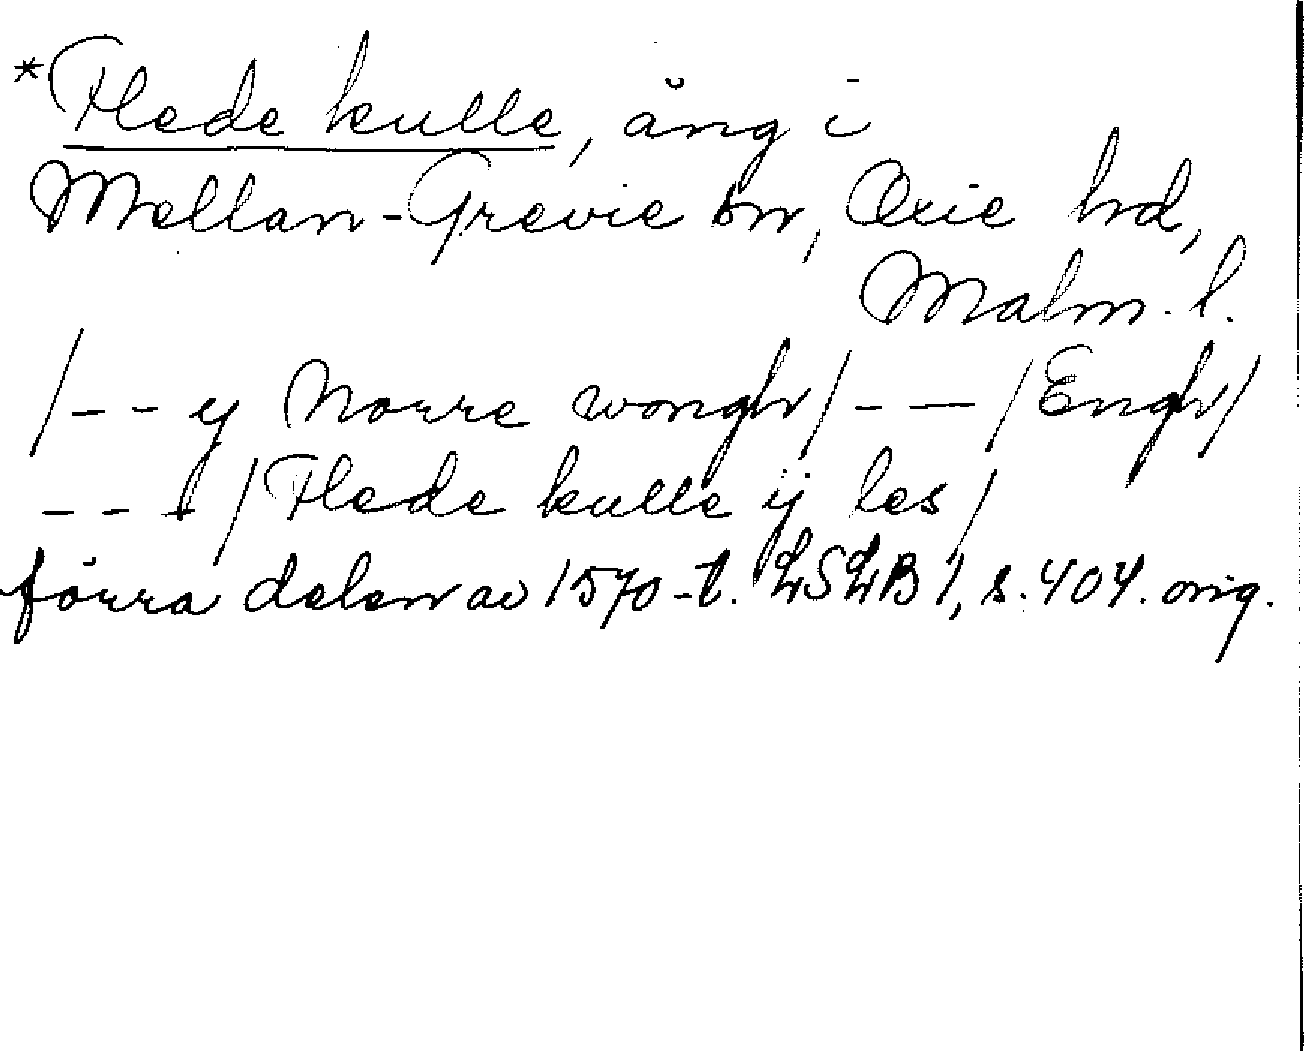 *Flede kulle, äng i
Mellan-Grevie sn, Oxie hd,
Malm. l.
/-- y Norre wongh/ -- — /Engh/
--- /Flede kulle ij les/
förra delen av 1570-t. LSLB 1, s. 404. orig.